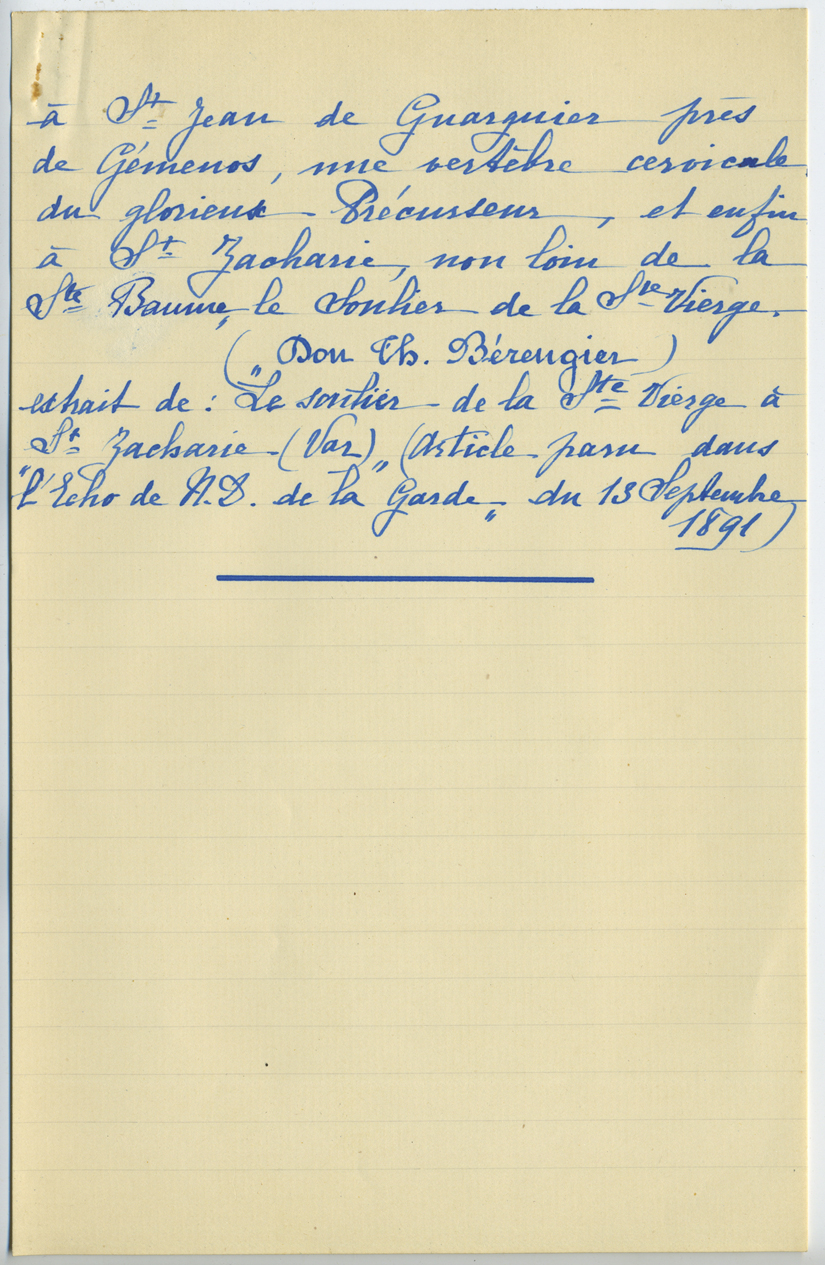 à St Jean de Guarguier près
de Gémenos, une vertèbre cervicale
du glorieux Précurseur, et enfin
à St Zacharie, non loin de la
Ste Baume„ le Soulier de la Ste Vierge.
(„Don Th. Bérengier)
extrait de : Le soulier de la Ste Vierge à
St Zacharie (Var)„ (Article paru dans
"l'Echo de N.D. de la Garde„ du 13 Septembre
1891)